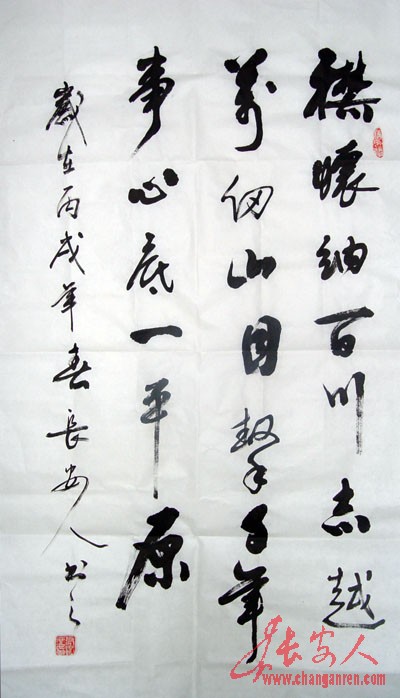 襟懷納百川志越
萬仞山目擊千年
事心底一平原
歲在丙戌年春長安人书之
长安人
www.changanren.com